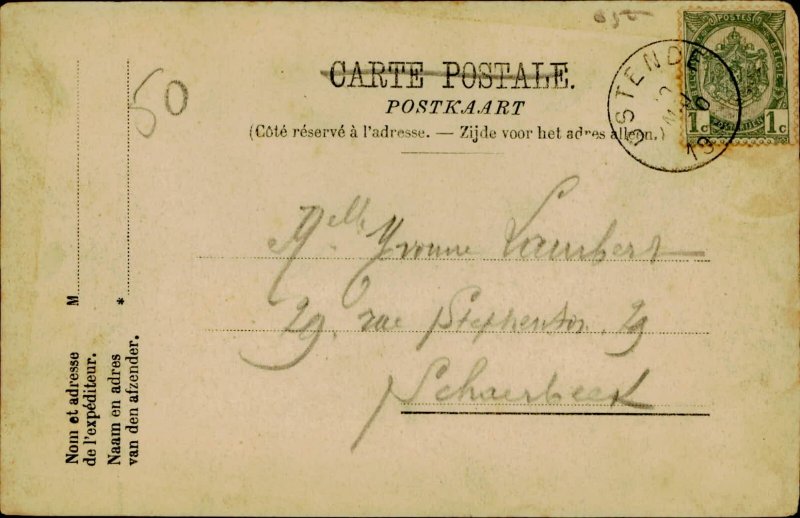 50
CARTE POSTALE.
POSTKAART
(Côté réservé à l'adresse. — Zijde voor het adres alleen.)
POSTES
1c 1c
OSTENDE
13
Melle Yvonne Lambert
29, rue Stephenson 29
Schaerbeek
M
Nom et adresse
de l'expéditeur.
*
Naam en adres
van den afzender.